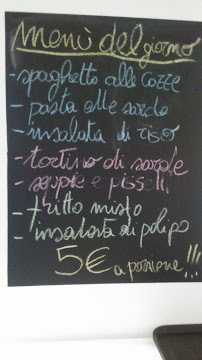 menù del giorno
- spaghetto alle cozze
- pasta alle sarde
- insalata di riso
- tortino di sarde
- seppie e piselli
- fritto misto
- insalata di polipo
5€ a porzione!!!